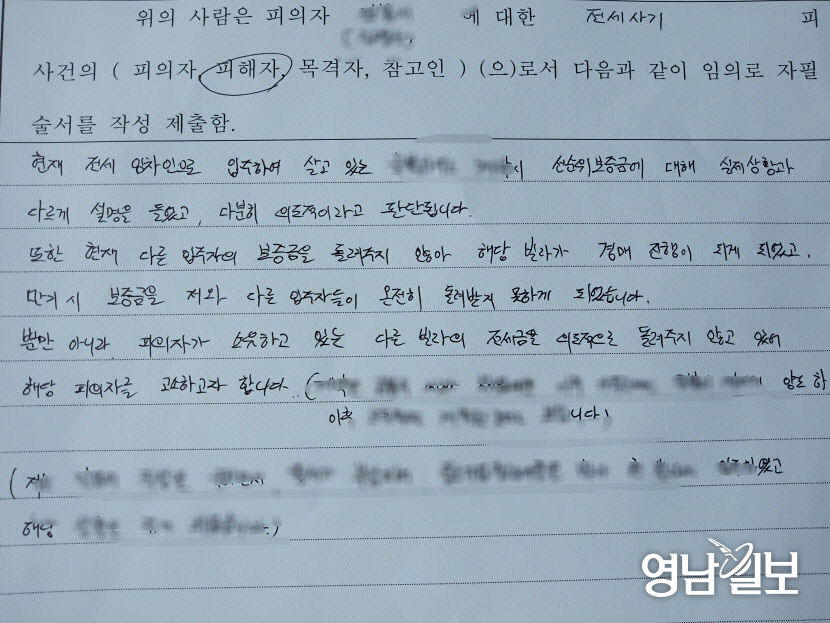 위의 사람은 피의자 에 대한 전세사기 피
사건의 ( 피의자, 피해자, 목격자, 참고인 ) (으)로서 다음과 같이 임의로 자필
술서를 작성 제출함.
현재 전세 임차인으로 입주하여 살고 있는 시 선순위보증금에 대해 실제상황과
다르게 설명을 들었고, 다분히 의도적이라고 판단됩니다.
또한 현재 다른 입주자의 보증금을 돌려주지 않아 해당 빌라가 경매 진행이 되게 되었고,
만기 시 보증금을 저와 다른 입주자들이 온전히 돌려받지 못하게 되었습니다.
뿐만 아니라, 피의자가 소유하고 있는 다른 빌라의 전세금을 의도적으로 돌려주지 않고 있어
해당 피의자를 고소하고자 합니다. ( 양도 하
이후 니다)
( 었고
해당 )
영남일보